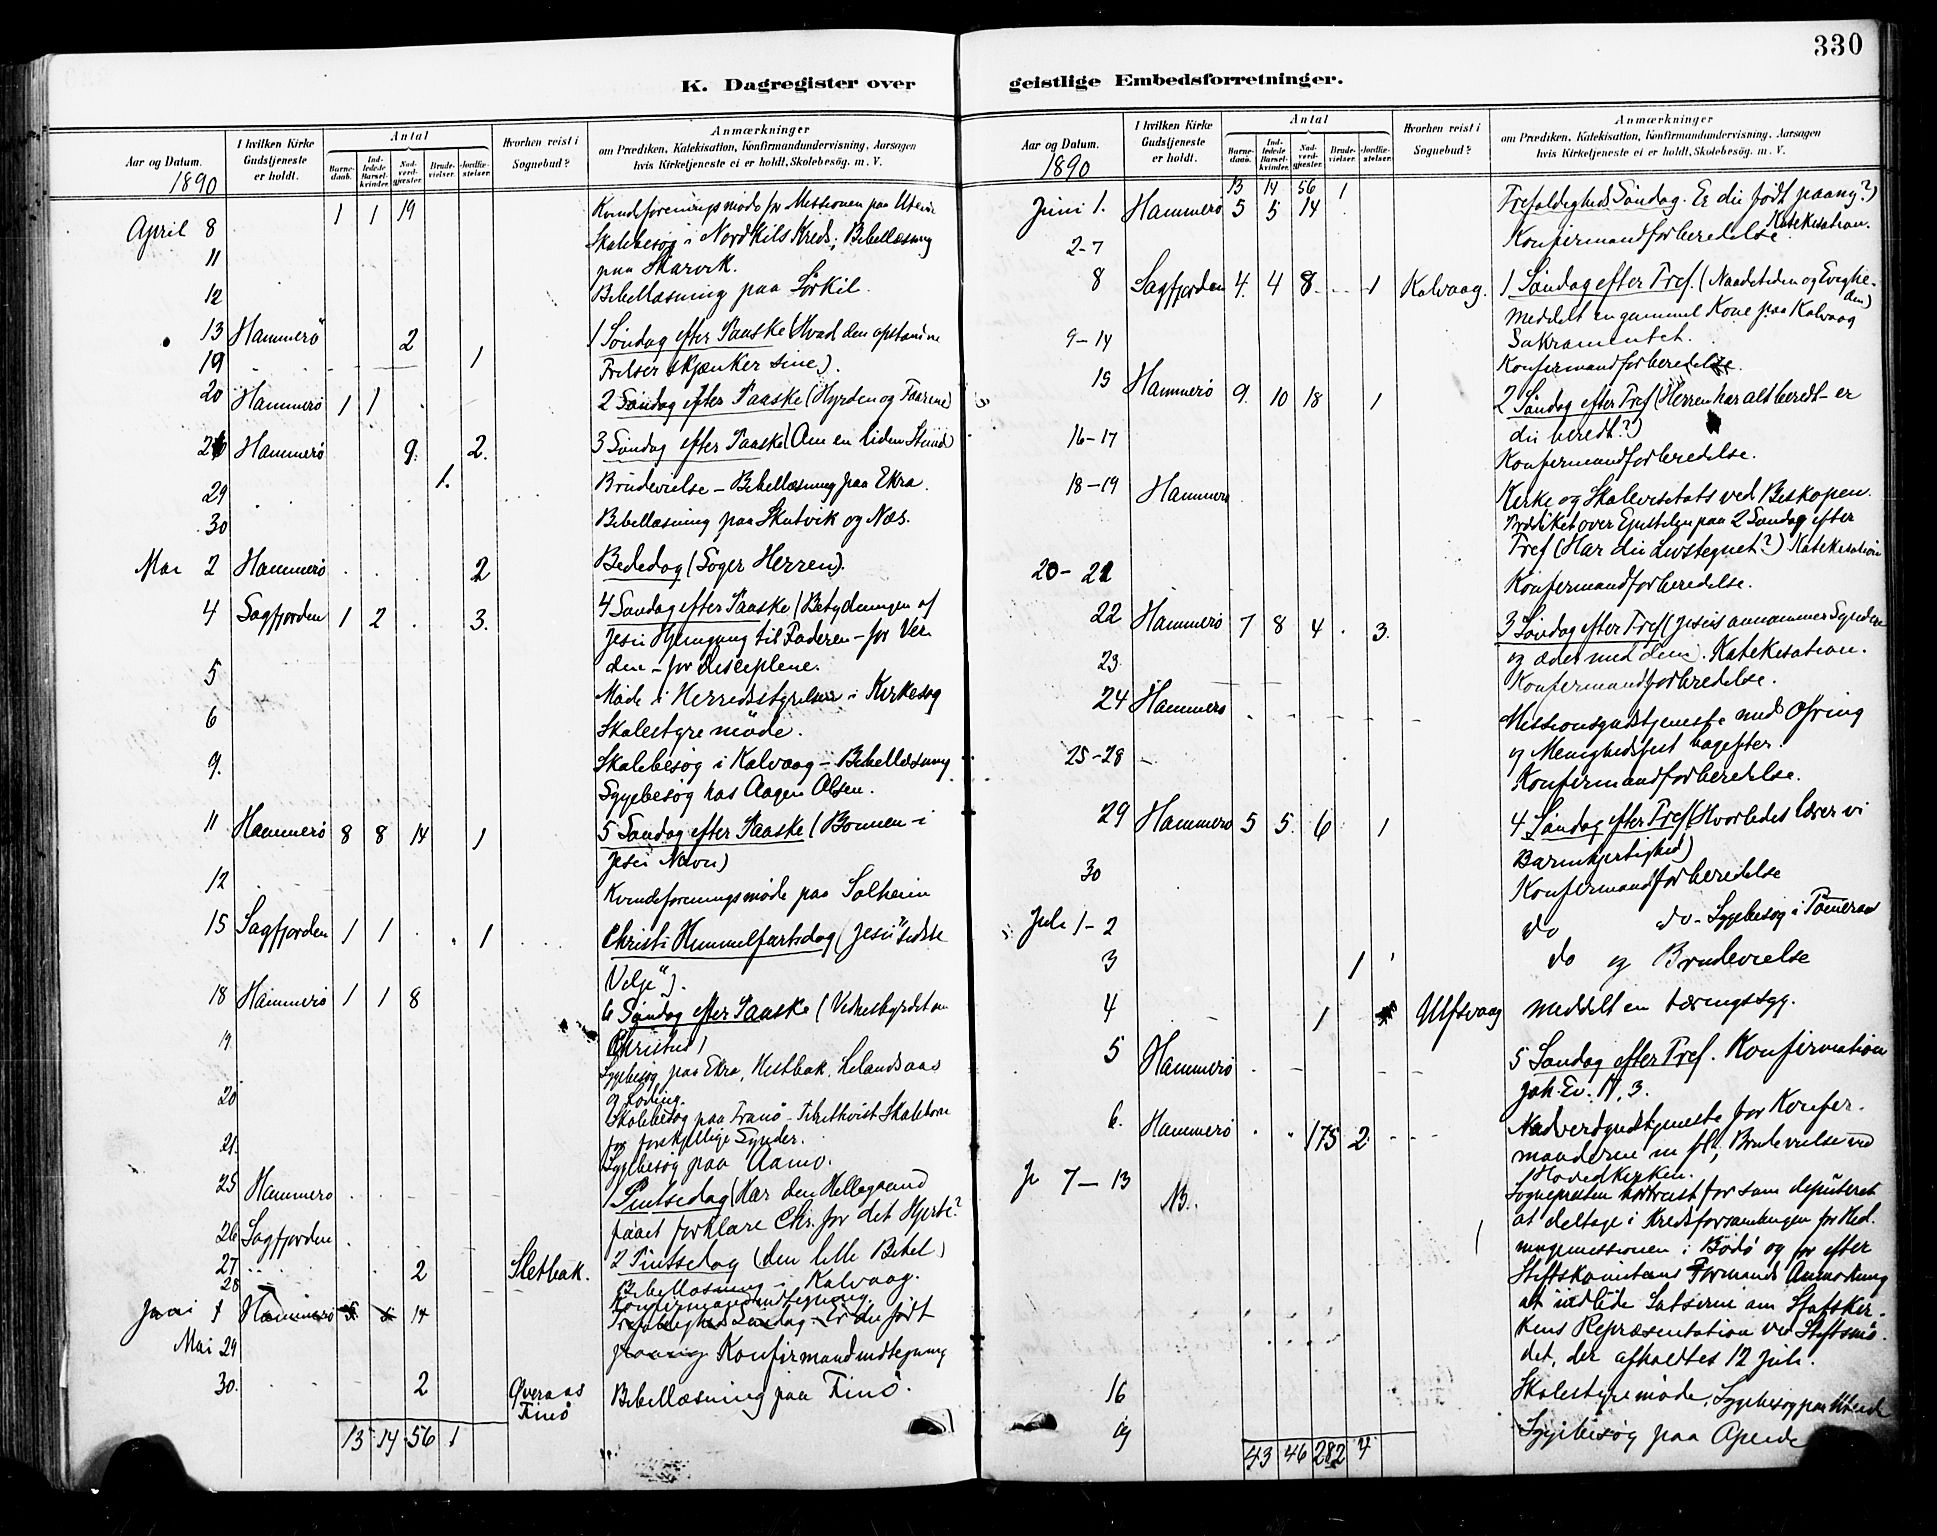 330
K. Dagregister over
Aar og Datum.
1890
I hvilken Kirke Gudstjeneste er holdt.
Antal
Barnedaab.
Indledede Barselkvinder.
Nadverdgjester.
Brudevielser.
Jordfæstelser.
Hvorhen reist i Sognebud?
Anmærkninger
om Prædiken, Katekisation, Konfirmandundervisning, Aarsagen
hvis Kirketjeneste ei er holdt, Skolebesög. m. V.
1 1 19 Kvindeforeningsmøde for Missionen paa
April 8 Skolebesøg i Nordkils Kreds; Bibellæsning
11 paa Skarvik.
12 Bibellæsning paa Sørkil.
13 Hammerö 2 1 Søndag efter Paaske (Hvad den opstandne
19 1 Frelser skjænker sine).
20 Hammerö 1 1 2 Søndag efter Paaske (Hyrden og Faarene)
26 Hammerö 9. 2. 3 Søndag efter Paaske (Om en liden Stund)
29 1. Brudevielse – Bibellæsning paa Ekra.
30 Bibellæsning paa Skutvik og Næs.
Mai 2 Hammerö 2 Bededag (Søger Herren).
4 Sagfjorden 1 2 3. 4 Søndag efter Paaske (Betydningen af
Jesu Hjemgang til Faderen – for Ver-
den – for disciplene.
5 Møde i Herredsstyrelsen i Kirkesog
6 Skolestyremöde.
9. Skolebesøg i Kalvaag – Bibellæsning
Sygebesøg hos Aagen Olsen.
11 Hammerö 8 8 14 1 5 Søndag efter Paaske (Bønnen i
Jesu Navn)
12 Kvindeforeningsmøde paa Solheim
15 Sagfjorden 1 1 1 Christi Himmelfartsdag (Jesu "sidste
Vilje").
18 Hammerö 1 1 8 6 Søndag efter Paaske (Vidnesbyrdet om
Christus)
19 Sygebesøg paa Ekra, Hestbak, Lilandsaas
og Løding.
20 Skolebesøg paa Tranö – Skolebørn
for forskjellige Synder.
21. Sygebesøg paa Aamo.
25 Hammerö 1 Pintsedag (Har den Helligaand
faaet forklare Chr. for dit Hjerte?
26 Sagfjorden 2 Pintsedag (den lille Bibel)
27 2 Sletbak. Bibellæsning i Kalvaag.
28 Konfirmandindtegning.
Juni 1 Hammerö 5 5 14 Trefoldigheds Søndag – Er du født
Mai 29 paany Konfirmandindtegning
30. 2 Øveraas Finö Bibellæsning paa Finö.
13 14 56 1
geistlige Embedsforretninger.
Aar og Datum.
1890
I hvilken Kirke Gudstjeneste er holdt.
Antal
Barnedaab.
Indledede Barselkvinder.
Nadverdgjester.
Brudevielser.
Jordfæstelser.
Hvorhen reist i Sognebud?
Anmærkninger
om Prædiken, Katekisation, Konfirmandundervisning, Aarsagen
hvis Kirketjeneste ei er holdt, Skolebesög. m. V.
13 14 56 1
Juni 1. Hammerö 5 5 14 Trefoldigheds Søndag. Er du født paany?)
Katekisation.
2-7 Konfirmandforberedelse
8 Sagfjorden 4. 4 8 1 Kalvaag. 1 Søndag efter Tref. (Naadetiden og Evighe-
den)
Meddelt en gammel Kone paa Kalvaag
Sakramentet.
9-14 Konfirmandforberedelse.
15 Hammerö 9. 10 18 1 2 Søndag efter Tref (Herren har alt beredt – er
du beredt?)
16-17 Konfirmandforberedelse.
18-19 Hammerö Kirke og Skolevisitats ved Biskopen.
Prædiket over Epistelen paa 2 Søndag efter
Tref (Har du Livstegnet?) Katekisation
20-21 Konfirmandforberedelse.
22 Hammerö 7 8 4 3. 3 Søndag efter Tref (Jesus annammer Syndere
og æder med dem). Katekisation.
23 Konfirmandforberedelse.
24 Hammerö Missionsgudstjeneste med Ofring
og Menighedsfest bagefter.
25-28 Konfirmandforberedelse.
29 Hammerö 5 5. 6 1 4 Søndag efter Tref (Hvorledes lærer vi
Barmhjertighed)
30 Konfirmandforberedelse
Juli 1-2 do do – Sygebesøg i
3 1 do og Brudevielse
4 1 Ulfsvaag Meddelt en tæringssyg.
5 Hammerö 5 Søndag efter Tref. Konfirmation
Joh. Ev. 17, 3.
6. Hammerö 175 2 Nadverdgudstjeneste for Konfir-
manderne m fl; Brudevielse ved
Hovedkirken.
7-13 NB. Sognepresten bortreist for som deputeret
at deltage i Kredsforsamlingen for Hed-
ningemissionen i Bodö og for efter
Stiftskomiteens Formands Anmodning
at indlede Satserne om Stafsker-
kens Repræsentation ved Stiftsmö-
det, der afholdtes 12 Juli.
16 Skolestyremøde, Sygebesøg paa
Sygebesøg paa
43 46 282 4